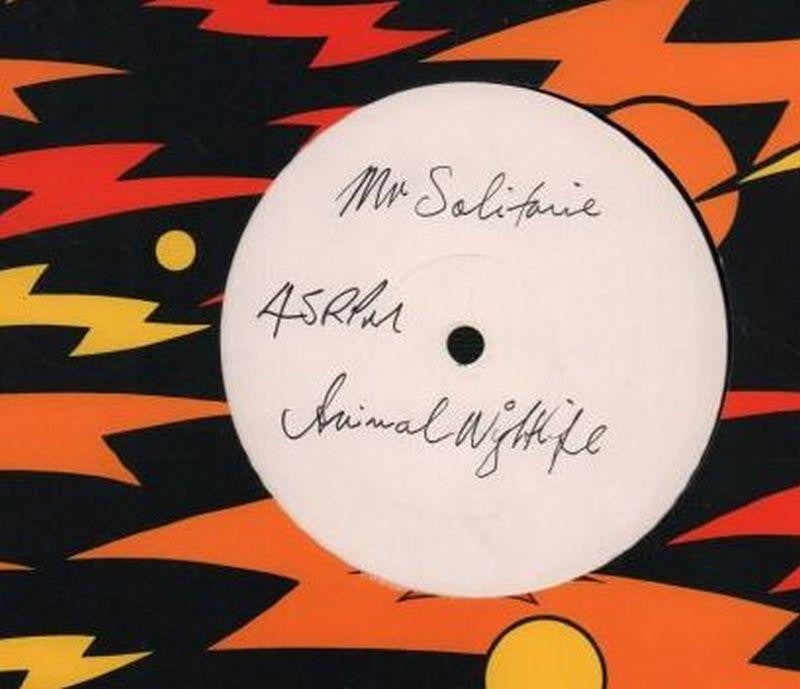 Mr Solitaire
45RPM
Animal Nightlife